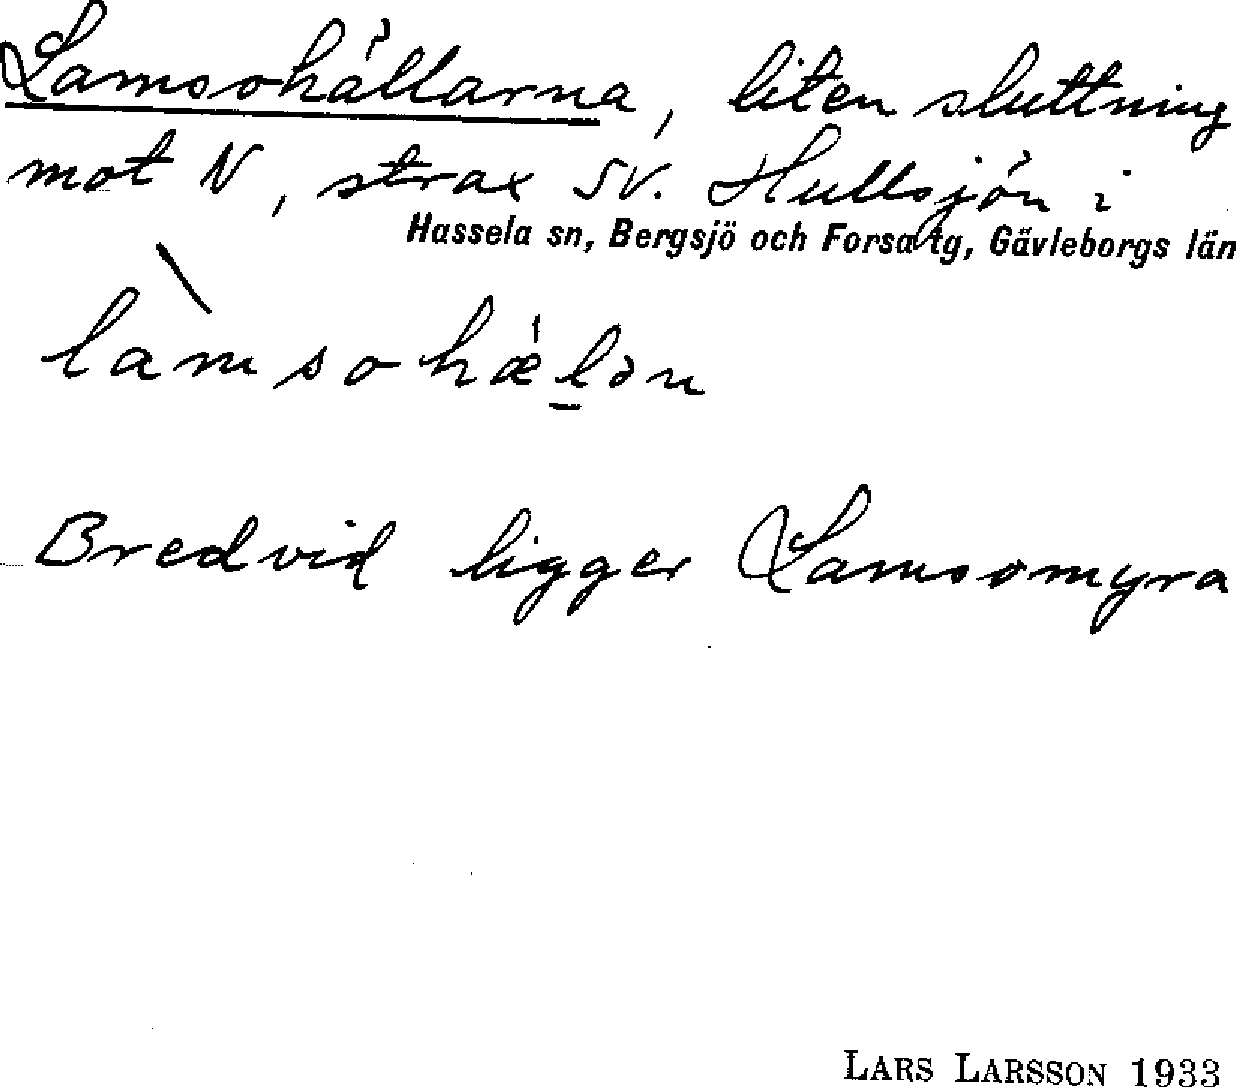 Lamsohällarna, liten sluttning
mot N, strax SV. Hullsjön i
Hassela sn, Bergsjö och Forsa tg, Gävleborgs län
làmsohǽlən
Bredvid ligger Lamsomyra
LARS LARSSON 1933